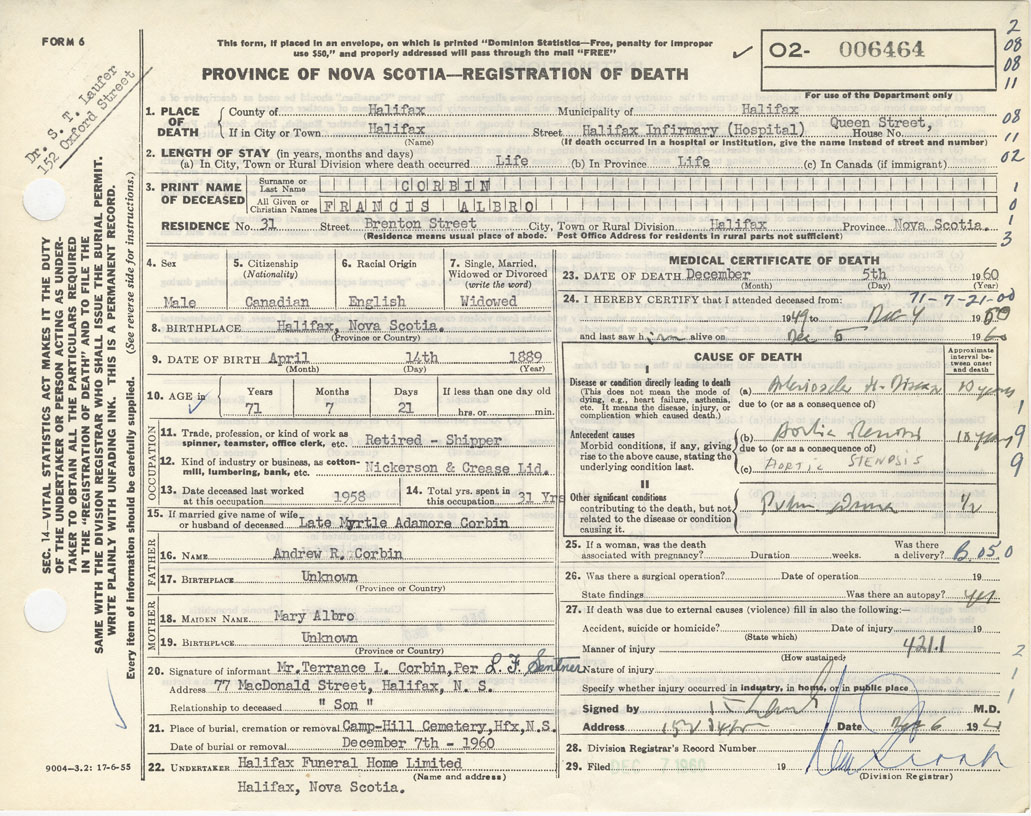 FORM 6
This form, if placed in an envelope, on which is printed "Dominion Statistics—Free, penalty for improper
use $50," and properly addressed will pass through the mail "FREE"
O2- 006464
For use of the Department only
PROVINCE OF NOVA SCOTIA—REGISTRATION OF DEATH
Dr. S. T. Laufer
152 Oxford Street
2
08
08
11
08
11
02
1
0
1
3
SEC. 14—VITAL STATISTICS ACT MAKES IT THE DUTY
OF THE UNDERTAKER OR PERSON ACTING AS UNDER-
TAKER TO OBTAIN ALL THE PARTICULARS REQUIRED
IN THE "REGISTRATION OF DEATH" AND TO FILE THE
SAME WITH THE DIVISION REGISTRAR WHO SHALL ISSUE THE BURIAL PERMIT.
WRITE PLAINLY WITH UNFADING INK. THIS IS A PERMANENT RECORD.
Every item of information should be carefully supplied. (See reverse side for instructions.)
1. PLACE OF DEATH County of Halifax Municipality of Halifax
If in City or Town Halifax Street Halifax Infirmary (Hospital) Queen Street, House No.
(Name) (If death occurred in a hospital or institution, give the name instead of street and number)
2. LENGTH OF STAY (in years, months and days)
(a) In City, Town or Rural Division where death occurred Life (b) In Province Life (c) In Canada (if immigrant)
3. PRINT NAME OF DECEASED Surname or Last Name CORBIN
All Given or Christian Names FRANCIS ALBRO
RESIDENCE No. 31 Street Brenton Street City, Town or Rural Division Halifax Province Nova Scotia.
(Residence means usual place of abode. Post Office Address for residents in rural parts not sufficient)
4. Sex 5. Citizenship 6. Racial Origin 7. Single, Married,
(Nationality) Widowed or Divorced
(write the word)
Male Canadian English Widowed
8. BIRTHPLACE Halifax, Nova Scotia.
(Province or Country)
9. DATE OF BIRTH April 14th 1889
(Month) (Day) (Year)
10. AGE in Years Months Days If less than one day old
71 7 21 hrs. or min.
OCCUPATION
11. Trade, profession, or kind of work as
spinner, teamster, office clerk, etc. Retired - Shipper
12. Kind of industry or business, as cotton-
mill, lumbering, bank, etc. Nickerson & Crease Lid.
13. Date deceased last worked
at this occupation 1958
14. Total yrs. spent in
this occupation 31 Yrs
15. If married give name of wife
or husband of deceased Late Myrtle Adamore Corbin
FATHER
16. NAME Andrew R. Corbin
17. BIRTHPLACE Unknown
(Province or Country)
MOTHER
18. MAIDEN NAME Mary Albro
19. BIRTHPLACE Unknown
(Province or Country)
20. Signature of informant Mr. Terrance L. Corbin, Per L. F. Sentner
Address 77 MacDonald Street, Halifax, N. S.
Relationship to deceased " Son "
21. Place of burial, cremation or removal Camp-Hill Cemetery, Hfx, N.S.
Date of burial or removal December 7th - 1960
22. UNDERTAKER Halifax Funeral Home Limited
(Name and address)
Halifax, Nova Scotia.
9004—3.2: 17-6-55
MEDICAL CERTIFICATE OF DEATH
23. DATE OF DEATH December 5th 1960
(Month) (Day) (Year)
71-7-21-00
24. I HEREBY CERTIFY that I attended deceased from:
1949 to Dec 4 1960
and last saw him alive on Dec 5 1960
CAUSE OF DEATH
Approximate
interval be-
tween onset
and death
I
Disease or condition directly leading to death
(This does not mean the mode of
dying, e.g., heart failure, asthenia,
etc. It means the disease, injury, or
complication which caused death.)
(a) H-Disease 10 years
due to (or as a consequence of)
Antecedent causes
Morbid conditions, if any, giving
rise to the above cause, stating the
underlying condition last.
(b) Aortic years
due to (or as a consequence of)
(c) AORTIC STENOSIS
1
9
9
II
Other significant conditions
contributing to the death, but not
related to the disease or condition
causing it.
1/2
25. If a woman, was the death
associated with pregnancy? Duration weeks. Was there
a delivery?
B. 05.0
26. Was there a surgical operation? Date of operation 19
State findings Was there an autopsy?
27. If death was due to external causes (violence) fill in also the following:—
Accident, suicide or homicide? Date of injury 19
(State which)
Manner of injury 421.1
(How sustained)
Nature of injury
Specify whether injury occurred in industry, in home, or in public place
2
1
1
Signed by M.D.
Address Date 6 19
28. Division Registrar's Record Number
29. Filed DEC 7 1960 19
(Division Registrar)